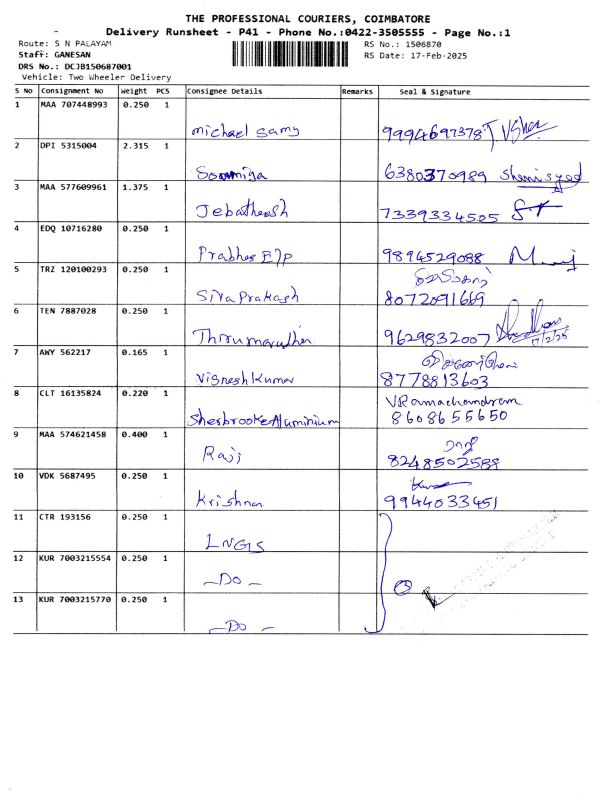 THE PROFESSIONAL COURIERS, COIMBATORE
Delivery Runsheet - P41 - Phone No.:0422-3505555 - Page No.:1
Route: S N PALAYAM RS No.: 1506870
Staff: GANESAN RS Date: 17-Feb-2025
DRS No.: DCJB150687001
Vehicle: Two Wheeler Delivery
S No Consignment No Weight PCS Consignee Details Remarks Seal & Signature
1 MAA 707448993 0.250 1
michael Samy 9994697378
2 DPI 5315004 2.315 1
Sowmiya 6380370989
3 MAA 577609961 1.375 1
Jebatheesh 7339334505
4 EDQ 10716280 0.250 1
Prabhos E/P 9894529088
5 TRZ 120100293 0.250 1
Siva Prakash 8072091669
6 TEN 7887028 0.250 1
Thirumaruthu 9629832007 17/2/25
7 AWY 562217 0.165 1
Vignesh Kumar 8778813603
8 CLT 16135824 0.220 1 V Ramachandram
Sherbrooke Aluminium 8608655650
9 MAA 574621458 0.400 1
Raji 8248502589
10 VDK 5687495 0.250 1
Krishnan 9944033451
11 CTR 193156 0.250 1
LNGIS
12 KUR 7003215554 0.250 1
- Do -
13 KUR 7003215770 0.250 1
- Do -